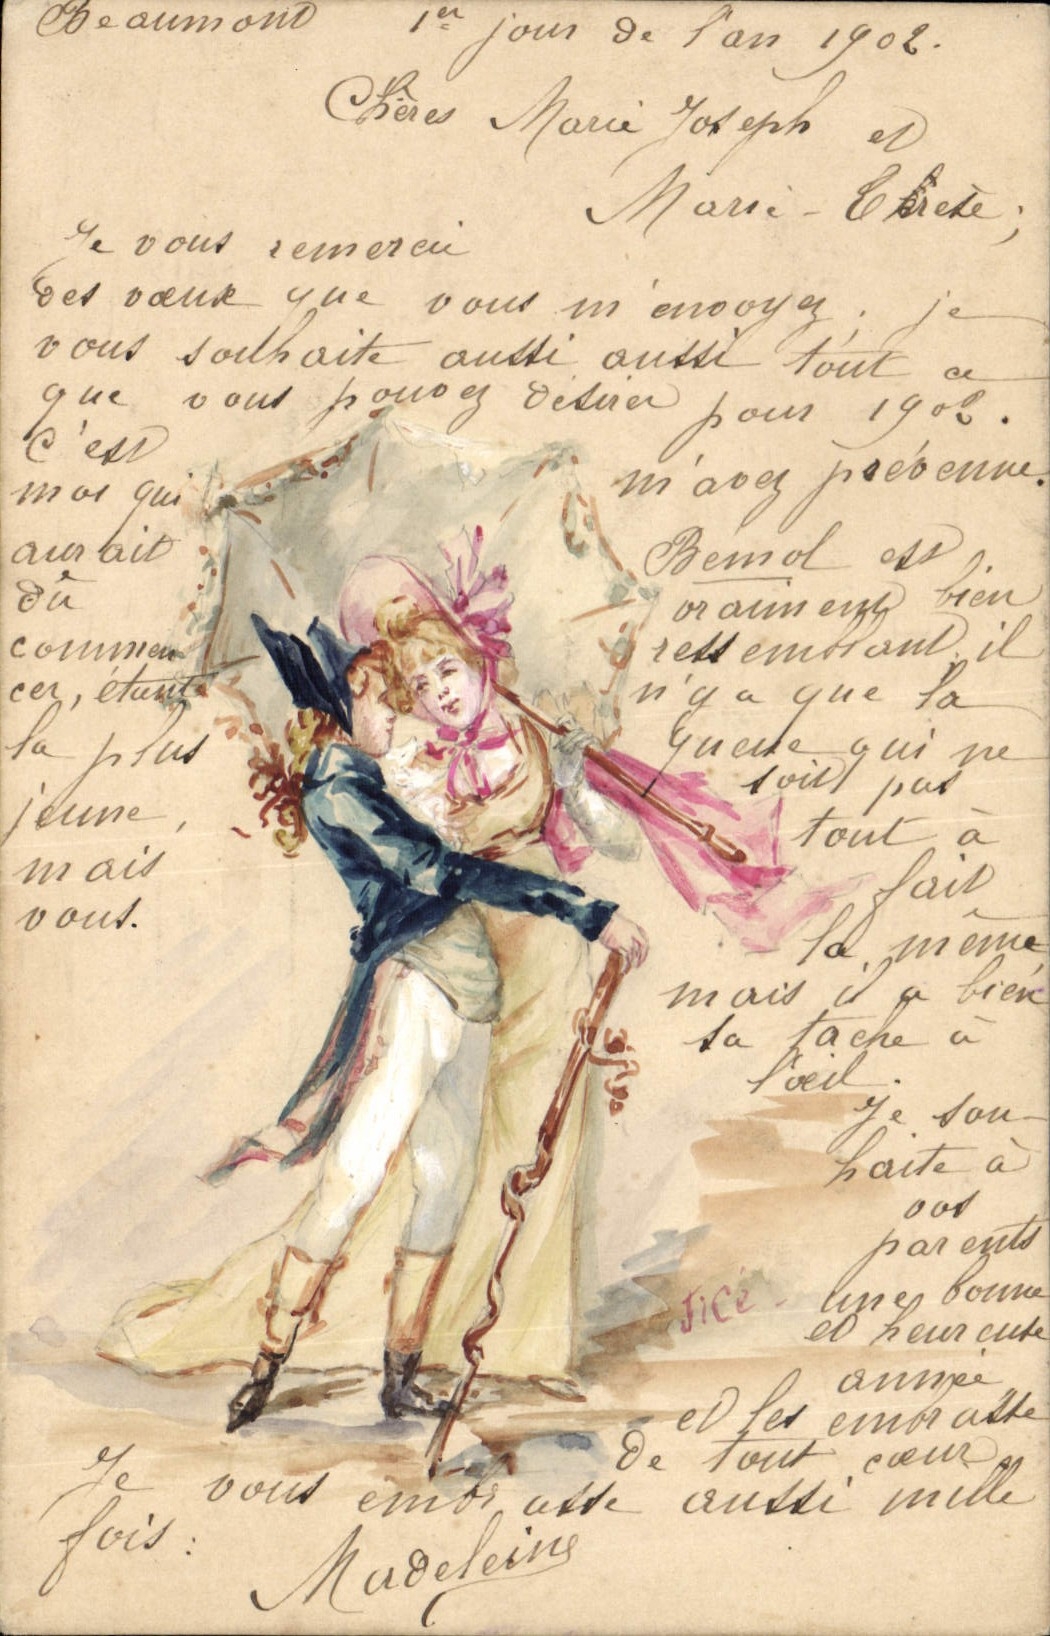 Beaumont 1er jour de l'an 1902.
Chères Marie Joseph et
Marie-Thérèse;
Je vous remercie
des vœux que vous m'envoyez; je
vous souhaite aussi aussi tout ce
que vous pouvez désirer pour 1902.
C'est
moi qui
aurait
dû
commen
cer, étante
la plus
jeune,
mais
vous.
m'avez prévenue.
Bémol est
vraiment bien
ressemblant, il
n'y a que la
queue qui ne
soit pas
tout à
fait
la même
mais il a bien
sa tache à
l'œil.
Je sou-
haite à
vos
parents
une bonne
et heureuse
année
et les embrasse
de tout cœur
Je vous embrasse aussi mille
fois:
Madeleine
JiCé